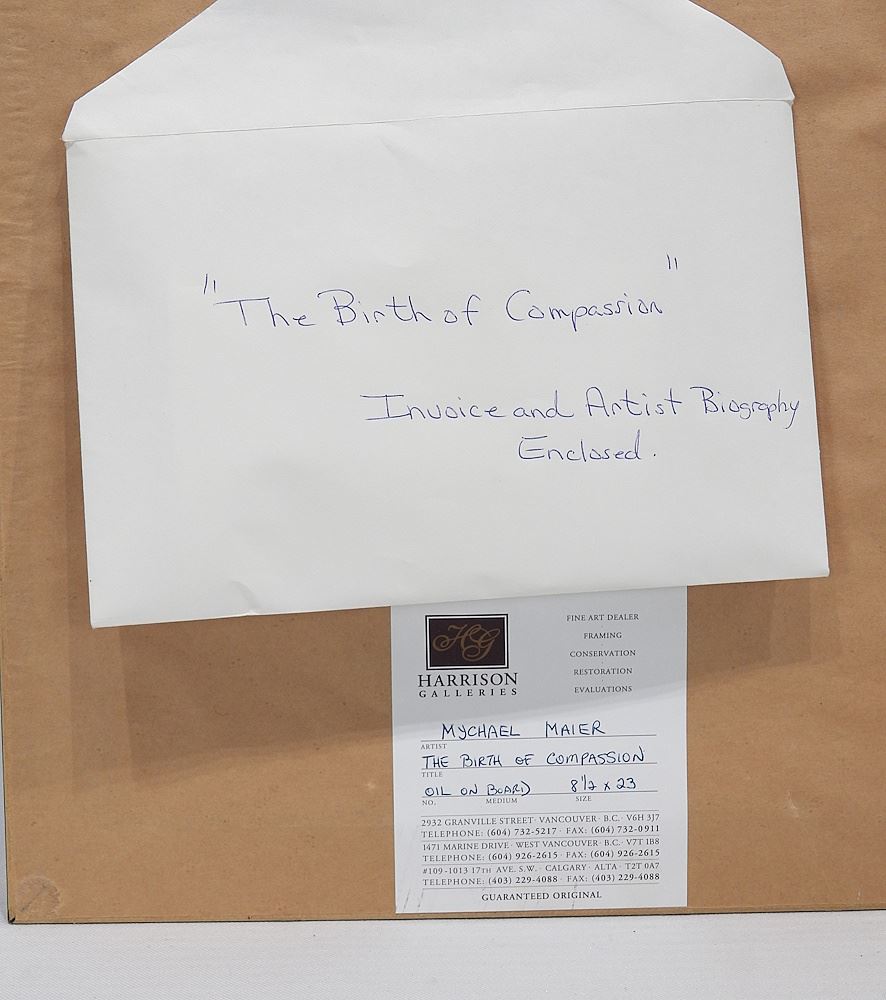 "The Birth of Compassion"
Invoice and Artist Biography
Enclosed.
HG
HARRISON
GALLERIES
FINE ART DEALER
FRAMING
CONSERVATION
RESTORATION
EVALUATIONS
MYCHAEL MAIER
ARTIST
THE BIRTH OF COMPASSION
TITLE
OIL ON BOARD 8 1/2 x 23
NO. MEDIUM SIZE
2932 GRANVILLE STREET · VANCOUVER · B.C. · V6H 3J7
TELEPHONE: (604) 732-5217 · FAX: (604) 732-0911
1471 MARINE DRIVE · WEST VANCOUVER · B.C. · V7T 1B8
TELEPHONE: (604) 926-2615 · FAX: (604) 926-2615
#109-1013 17TH AVE. S.W. · CALGARY · ALTA · T2T 0A7
TELEPHONE: (403) 229-4088 · FAX: (403) 229-4088
GUARANTEED ORIGINAL